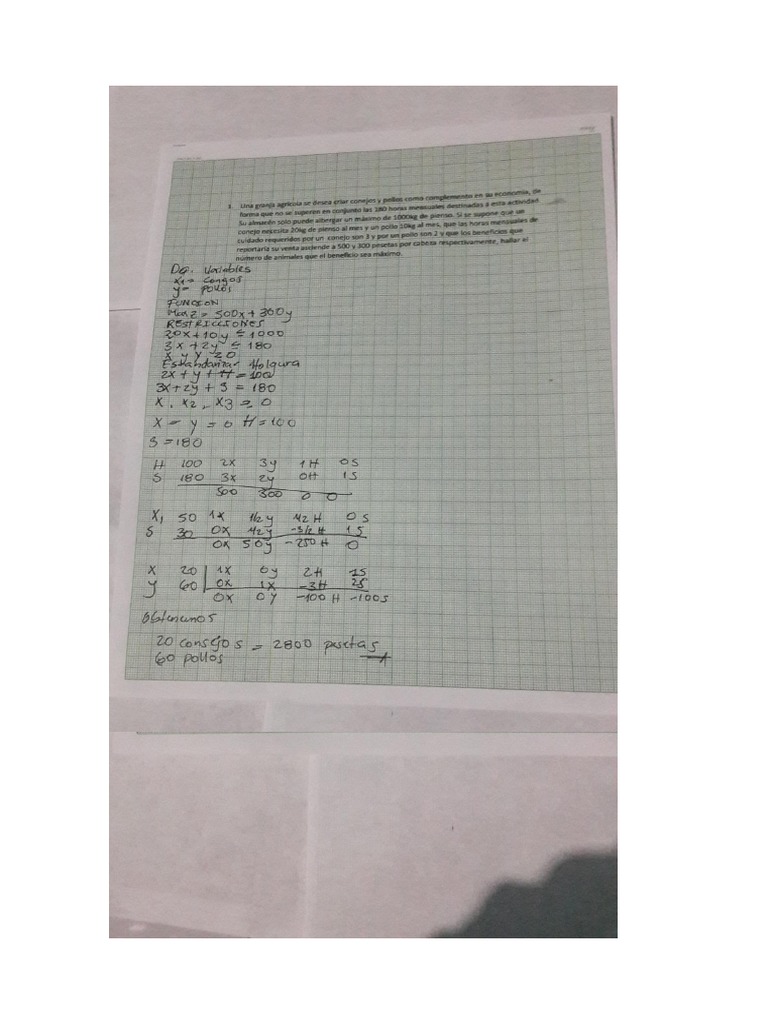 1. Una granja agrícola se desea criar conejos y pollos como complemento en su economía, de
forma que no se superen en conjunto las 180 horas mensuales destinadas a esta actividad.
Su almacén solo puede albergar un máximo de 1000kg de pienso. Si se supone que un
conejo necesita 20kg de pienso al mes y un pollo 10kg al mes, que las horas mensuales de
cuidado requeridos por un conejo son 3 y por un pollo son 2 y que los beneficios que
reportaría su venta asciende a 500 y 300 pesetas por cabeza respectivamente, hallar el
número de animales que el beneficio sea máximo.
Def. Variables
x1= conejos
y= pollos
FUNCION
Max Z = 500x + 300y
RESTRICCIONES
20x + 10y ≤ 1000
3x + 2y ≤ 180
x y y ≥ 0
Estandarizar Holgura
2x + y + H = 100
3x + 2y + S = 180
x, x2, x3 ≥ 0
x = y = 0 H = 100
S = 180
H 100 2x 3y 1H 0S
S 180 3x 2y 0H 1S
500 300 0 0
X1 50 1x 1/2y 1/2H 0S
S 30 0x 1/2y -3/2H 1S
0x 50y -250H 0
X 20 1x 0y 2H 1S
y 60 0x 1x -3H 2S
0x 0y -100H -100S
Obtenemos
20 conejos = 2800 pesetas
60 pollos